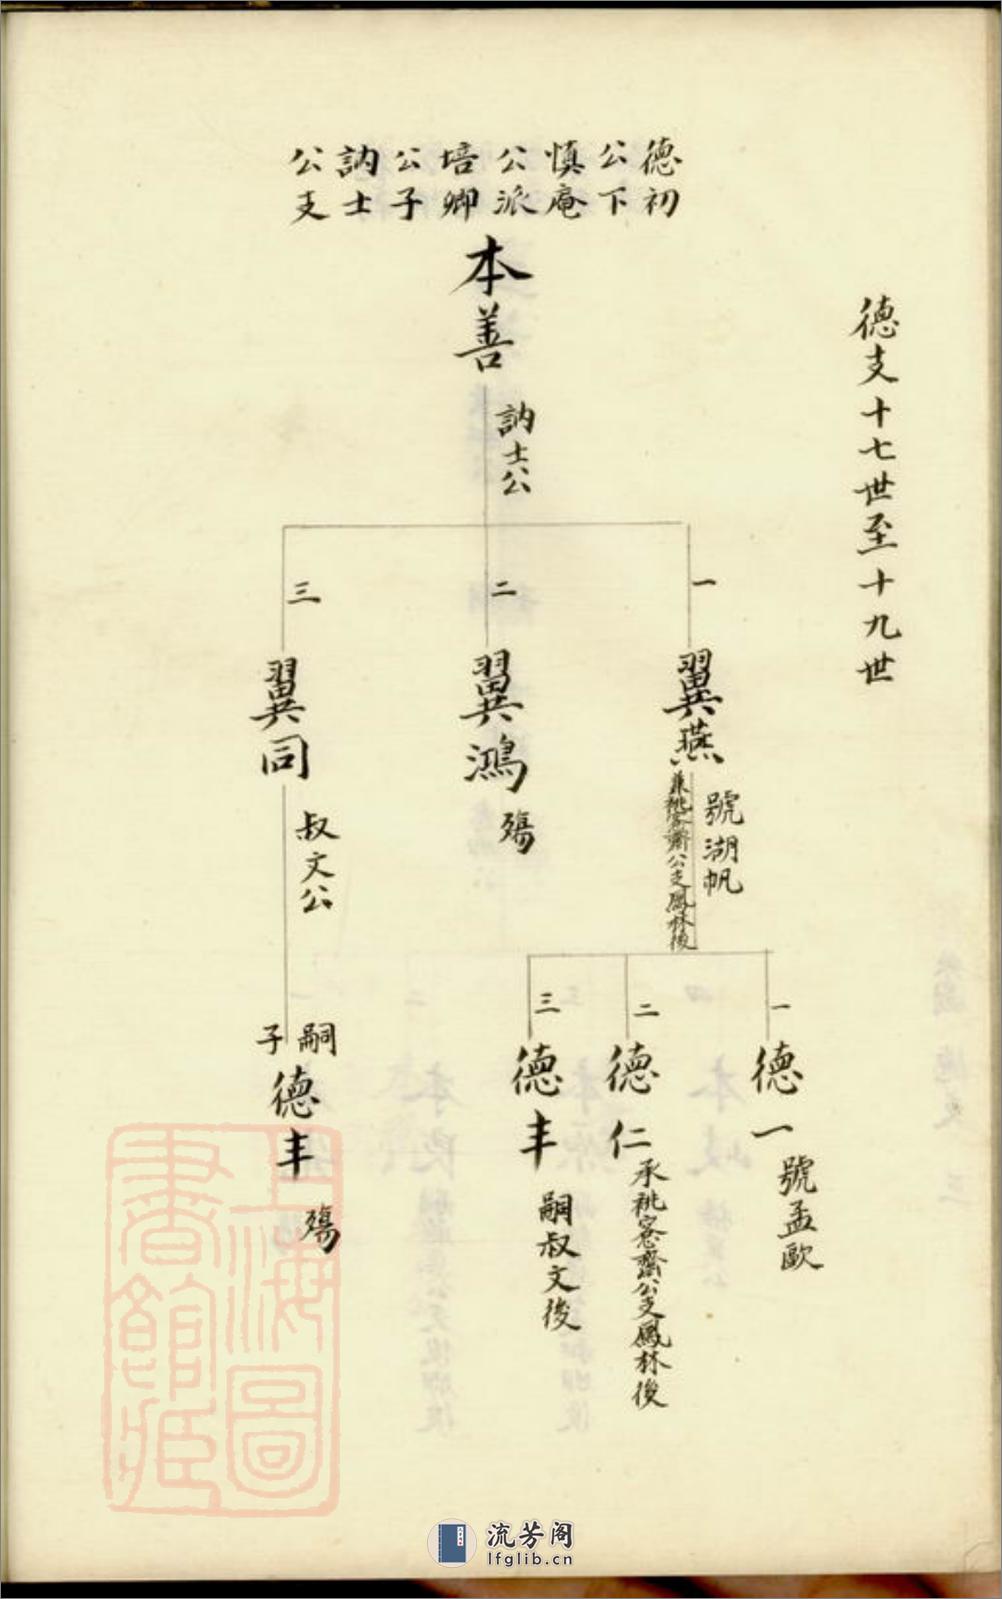 德支十七世至十九世
德初
公下
慎庵
公派
培卿
公子
訥士
公支
本善
訥士公
一
翼燕
號湖帆
兼祧窓齋公支鳳林後
二
翼鴻
殤
三
翼同
叔文公
一
德一
號孟歐
二
德仁
承祧窓齋公支鳳林後
三
德丰
嗣叔文後
嗣子
德丰
殤
上海圖書館藏
流芳阁
lfglib.cn